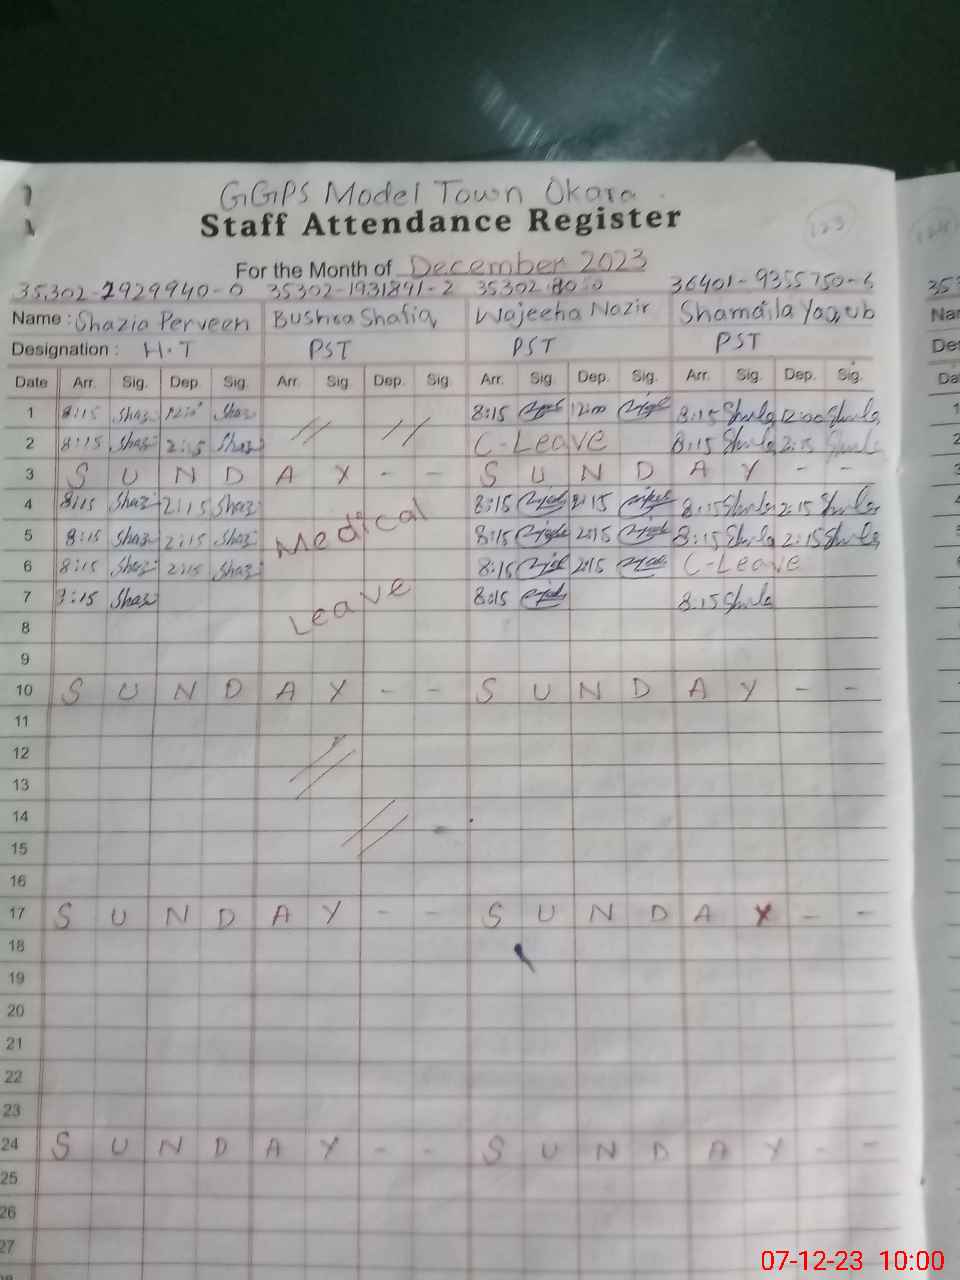 GGPS Model Town Okara
Staff Attendance Register
123
For the Month of December 2023
35302-2929940-0 35302-1931891-2 35302 36401-9355750-6
Name : Shazia Perveen Bushra Shafiq Wajeeha Nazir Shamaila Yaqub
Designation : H.T PST PST PST
Date Arr. Sig. Dep. Sig. Arr. Sig. Dep. Sig. Arr. Sig. Dep. Sig. Arr. Sig. Dep. Sig.
1 8:15 Shaz Shaz // // 8:15 12:00 8:15 12:00
2 8:15 Shaz 2:15 Shaz C-Leave 8:15 2:15
3 S U N D A Y - - S U N D A Y - -
4 8:15 Shaz 2:15 Shaz Medical 8:15 2:15 8:15 2:15
5 8:15 Shaz 2:15 Shaz 8:15 2:15 8:15 2:15
6 8:15 Shaz 2:15 Shaz Leave 8:15 2:15 C-Leave
7 8:15 Shaz 8:15 8:15
8
9
10 S U N D A Y - - S U N D A Y - -
11
12 //
13
14 //
15
16
17 S U N D A Y - - S U N D A Y - -
18
19
20
21
22
23
24 S U N D A Y - - S U N D A Y - -
25
26
27
07-12-23 10:00